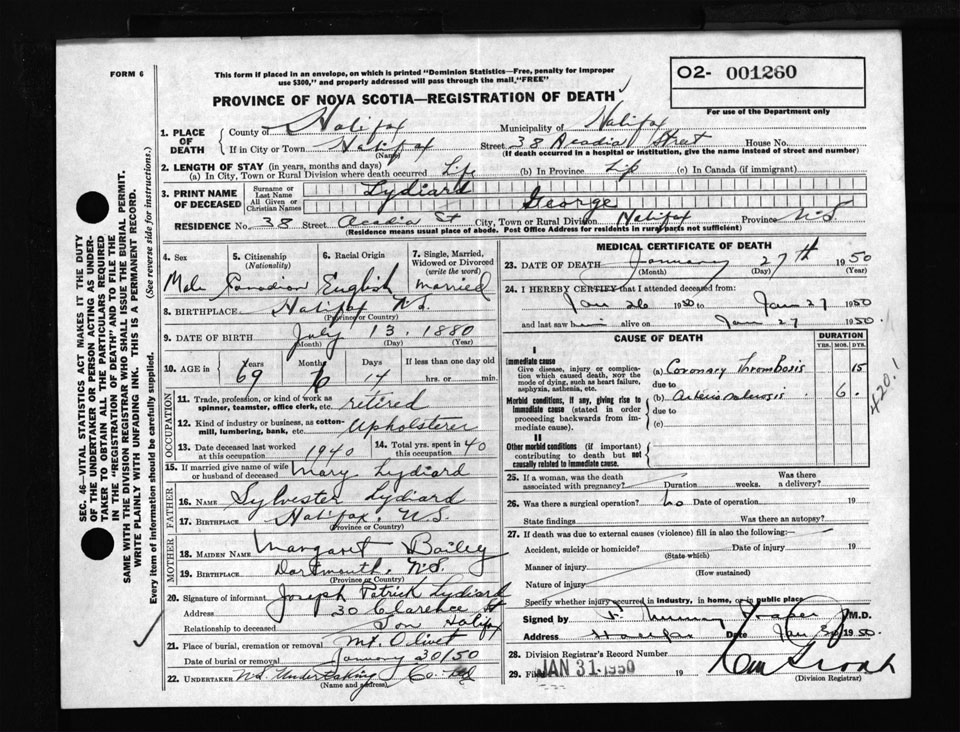 FORM 6
This form if placed in an envelope, on which is printed "Dominion Statistics—Free, penalty for improper
use $300," and properly addressed will pass through the mail "FREE"
O2- 001260
For use of the Department only
PROVINCE OF NOVA SCOTIA—REGISTRATION OF DEATH
1. PLACE OF DEATH
County of Halifax Municipality of Halifax
If in City or Town Halifax Street 38 Acadia Street House No.
(Name) (If death occurred in a hospital or institution, give the name instead of street and number)
2. LENGTH OF STAY (in years, months and days)
(a) In City, Town or Rural Division where death occurred Life (b) In Province Life (c) In Canada (if immigrant)
3. PRINT NAME OF DECEASED
Surname or Last Name Lydiard
All Given or Christian Names George
RESIDENCE No. 38 Street Acadia St City, Town or Rural Division Halifax Province N.S.
(Residence means usual place of abode. Post Office Address for residents in rural parts not sufficient)
4. Sex 5. Citizenship (Nationality) 6. Racial Origin 7. Single, Married, Widowed or Divorced (write the word)
Male Canadian English married
8. BIRTHPLACE Halifax N.S.
(Province or Country)
9. DATE OF BIRTH July 13. 1880
(Month) (Day) (Year)
10. AGE in Years Months Days If less than one day old
69 6 14 hrs. or min.
OCCUPATION
11. Trade, profession, or kind of work as spinner, teamster, office clerk, etc. retired
12. Kind of industry or business, as cotton-mill, lumbering, bank, etc. Upholsterer
13. Date deceased last worked at this occupation 1940 14. Total yrs. spent in this occupation 40
15. If married give name of wife or husband of deceased Mary Lydiard
FATHER
16. NAME Sylvester Lydiard
17. BIRTHPLACE Halifax N.S.
(Province or Country)
MOTHER
18. MAIDEN NAME Margaret Bailey
19. BIRTHPLACE Dartmouth. N.S.
(Province or Country)
20. Signature of informant Joseph Patrick Lydiard
Address 30 Clarence St Halifax
Relationship to deceased Son
21. Place of burial, cremation or removal Mt. Olivet
Date of burial or removal January 30/50
22. UNDERTAKER N.S. Undertaking Co. Ltd
(Name and address)
MEDICAL CERTIFICATE OF DEATH
23. DATE OF DEATH January 27th 1950
(Month) (Day) (Year)
24. I HEREBY CERTIFY that I attended deceased from:
Jan 26 1950 to Jan 27 1950
and last saw him alive on Jan 27 1950.
CAUSE OF DEATH DURATION
YRS. MOS. DYS.
I
Immediate cause
Give disease, injury or complication which caused death, not the mode of dying, such as heart failure, asphyxia, asthenia, etc.
(a) Coronary Thrombosis 15
due to
Morbid conditions, if any, giving rise to immediate cause (stated in order proceeding backwards from immediate cause).
(b) Arteriosclerosis 6
due to
(c)
420.1
II
Other morbid conditions (if important) contributing to death but not causally related to immediate cause.
25. If a woman, was the death associated with pregnancy? Duration weeks. Was there a delivery?
26. Was there a surgical operation? no Date of operation 19
State findings Was there an autopsy?
27. If death was due to external causes (violence) fill in also the following:
Accident, suicide or homicide? Date of injury 19
(State which)
Manner of injury
(How sustained)
Nature of injury
Specify whether injury occurred in industry, in home, or in public place
Signed by M.D.
Address Halifax Date Jan 30 1950.
28. Division Registrar's Record Number
29. Filed JAN 31 1950 19
(Division Registrar)
SEC. 46—VITAL STATISTICS ACT MAKES IT THE DUTY
OF THE UNDERTAKER OR PERSON ACTING AS UNDER-
TAKER TO OBTAIN ALL THE PARTICULARS REQUIRED
IN THE "REGISTRATION OF DEATH" AND TO FILE THE
SAME WITH THE DIVISION REGISTRAR WHO SHALL ISSUE THE BURIAL PERMIT.
WRITE PLAINLY WITH UNFADING INK. THIS IS A PERMANENT RECORD.
Every item of information should be carefully supplied. (See reverse side for instructions.)